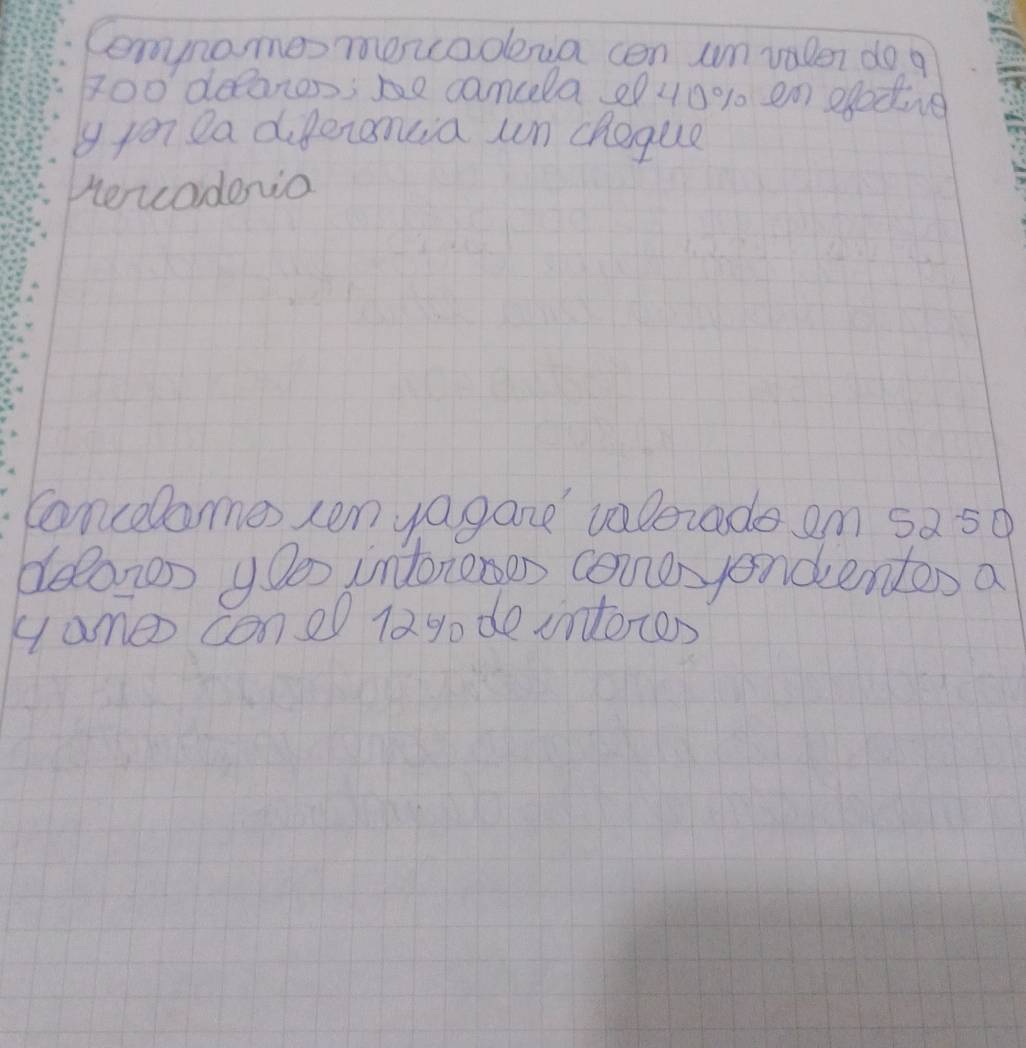 Compramos mercaderia con un valor de 9
700 dolares; se cancela el 40% en efectivo
y por la diferencia un cheque
Mercaderia
Cancelamos un pagaré valorado en 5250
dolares y los intereses correspondientes a
4 años con el 12% de interes